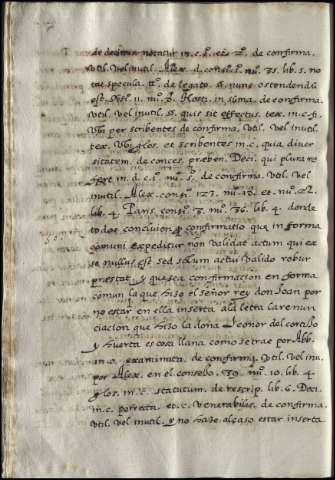 de decimis notatur in c. 1. et 2. de confirma.
util. vel inutil. Alex. d. consil. 1. nu. 31. lib. 5. no
tat specula. tt. de legato. §. nunc ostendendū
est. nu. 8. Hosti. in suma de confirma.
util. vel inutil. §. quis sit effectus. tex. in c. fi.
ubi per scribentes de confirma. util. vel inutil.
tex. ubi glos. et scribentes in c. quia diver
sitatem de conces. preben. Deci. qui plura re
fert in d. c. 1. nu. 5. de confirma. util. vel
inutil. Alex. consi. 127. nu. et. nu. 21.
lib. 4. Paris. consi. 3. nu. 76. lib. 4. donde
todos concluien q̃ confirmatio que in forma
comuni expeditur non validat actum qui ex
se nullus est sed solum actui valido robur
prestat. y que sea confirmacion en forma
comun la que hizo el señor rey don Joan por
no estar en ella inserta a la letra la renun
ciacion que hizo la doña Leonor del cortijo
y huerta es cosa llana como se trae por Abb.
in c. examinata de confirma. util. vel inu.
por Alex. en el consejo. 59. nu. 10. lib. 4.
glos. in c. statutum de rescrip. lib. 6. Deci.
in c. porrecta et c. venerabilis de confirma.
util. vel inutil. y no haze al caso estar inserta